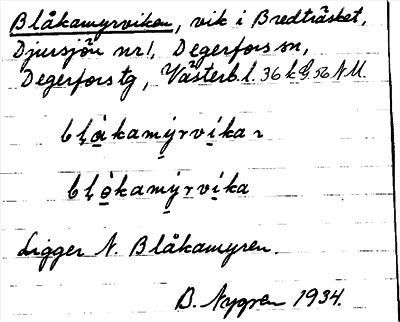 Blåkamyrviken, vik i Bredträsket,
Djursjön nr 1, Degerfors sn,
Degerfors tg, Västerb. l. 36 k G. 56 N M.
bḷo̱kamýrvíkan
bḷo̱kamýrvíka
Ligger N. Blåkamyren.
B. Nygren 1934.